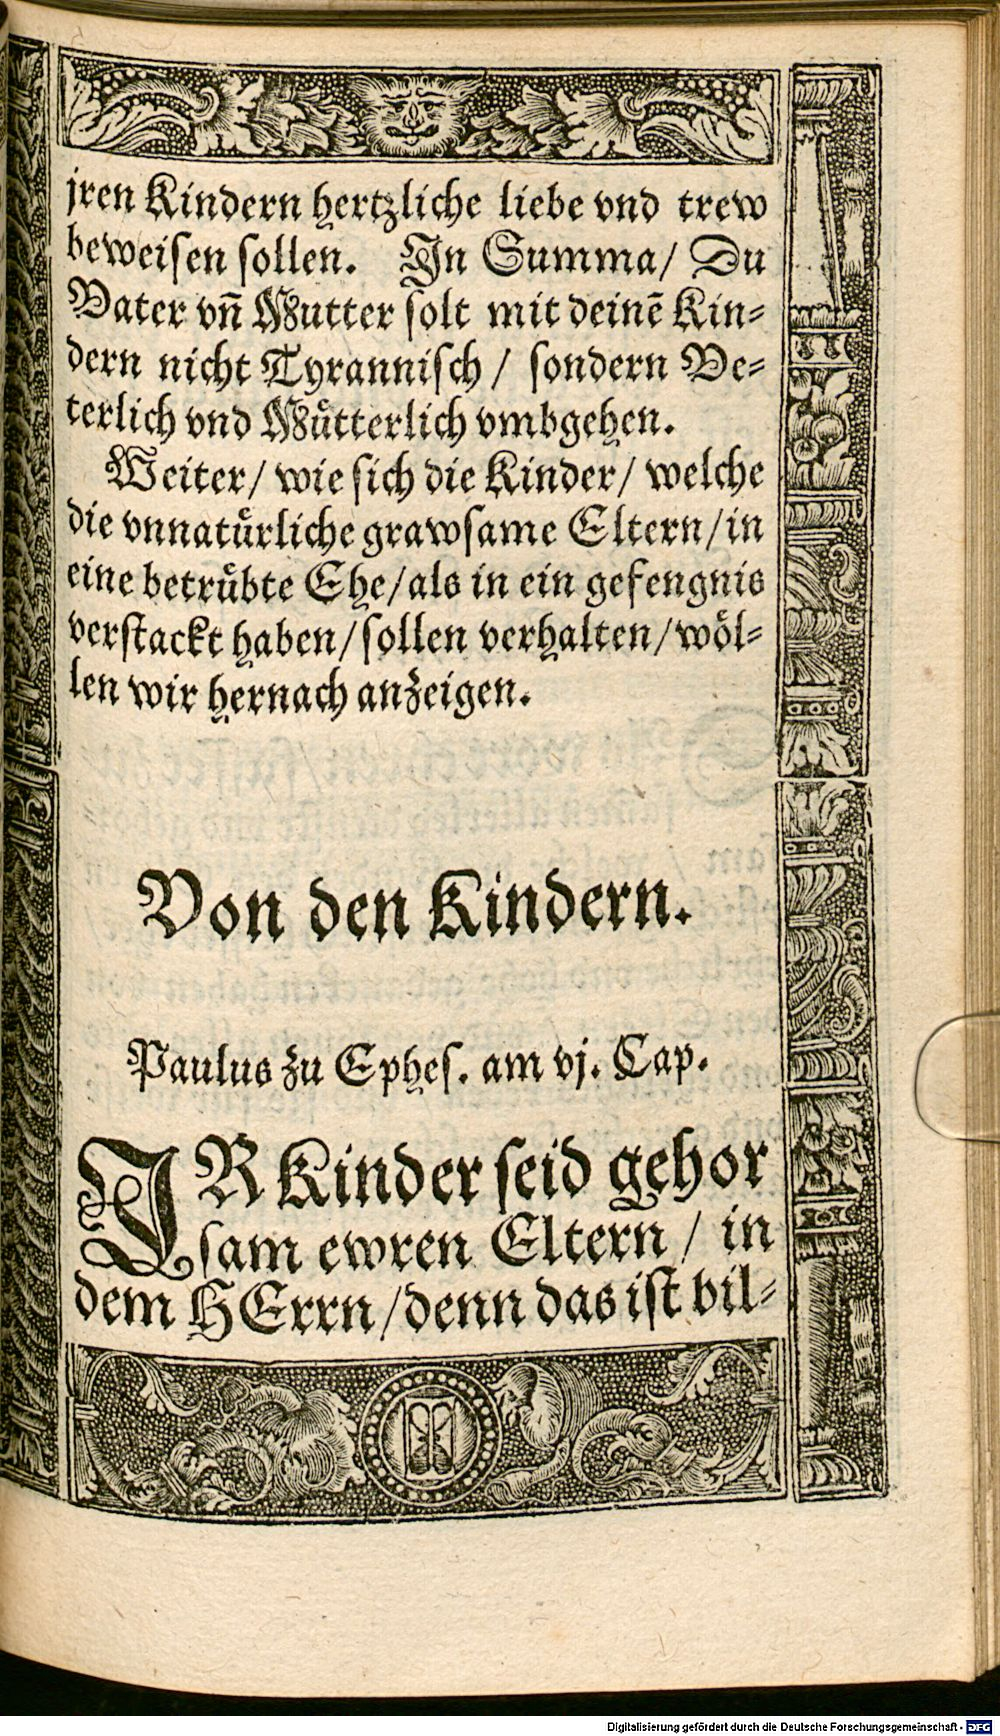 jren Kindern hertzliche liebe vnd trew
beweisen sollen. In Summa/ Du
Vater vn̄ Mutter solt mit deinē Kin⸗
dern nicht Tyrannisch / sondern Ve⸗
terlich vnd Muͤtterlich vmbgehen.
Weiter/ wie sich die Kinder/ welche
die vnnatuͤrliche grawsame Eltern/in
eine betruͤbte Ehe/als in ein gefengnis
verstackt haben/sollen verhalten/woͤl⸗
len wir hernach anzeigen.
Von den Kindern.
Paulus zu Ephes. am vj. Cap.
IR Kinder seid gehor
sam ewren Eltern / in
dem HErrn/denn das ist bil⸗
Digitalisierung gefördert durch die Deutsche Forschungsgemeinschaft - DFG